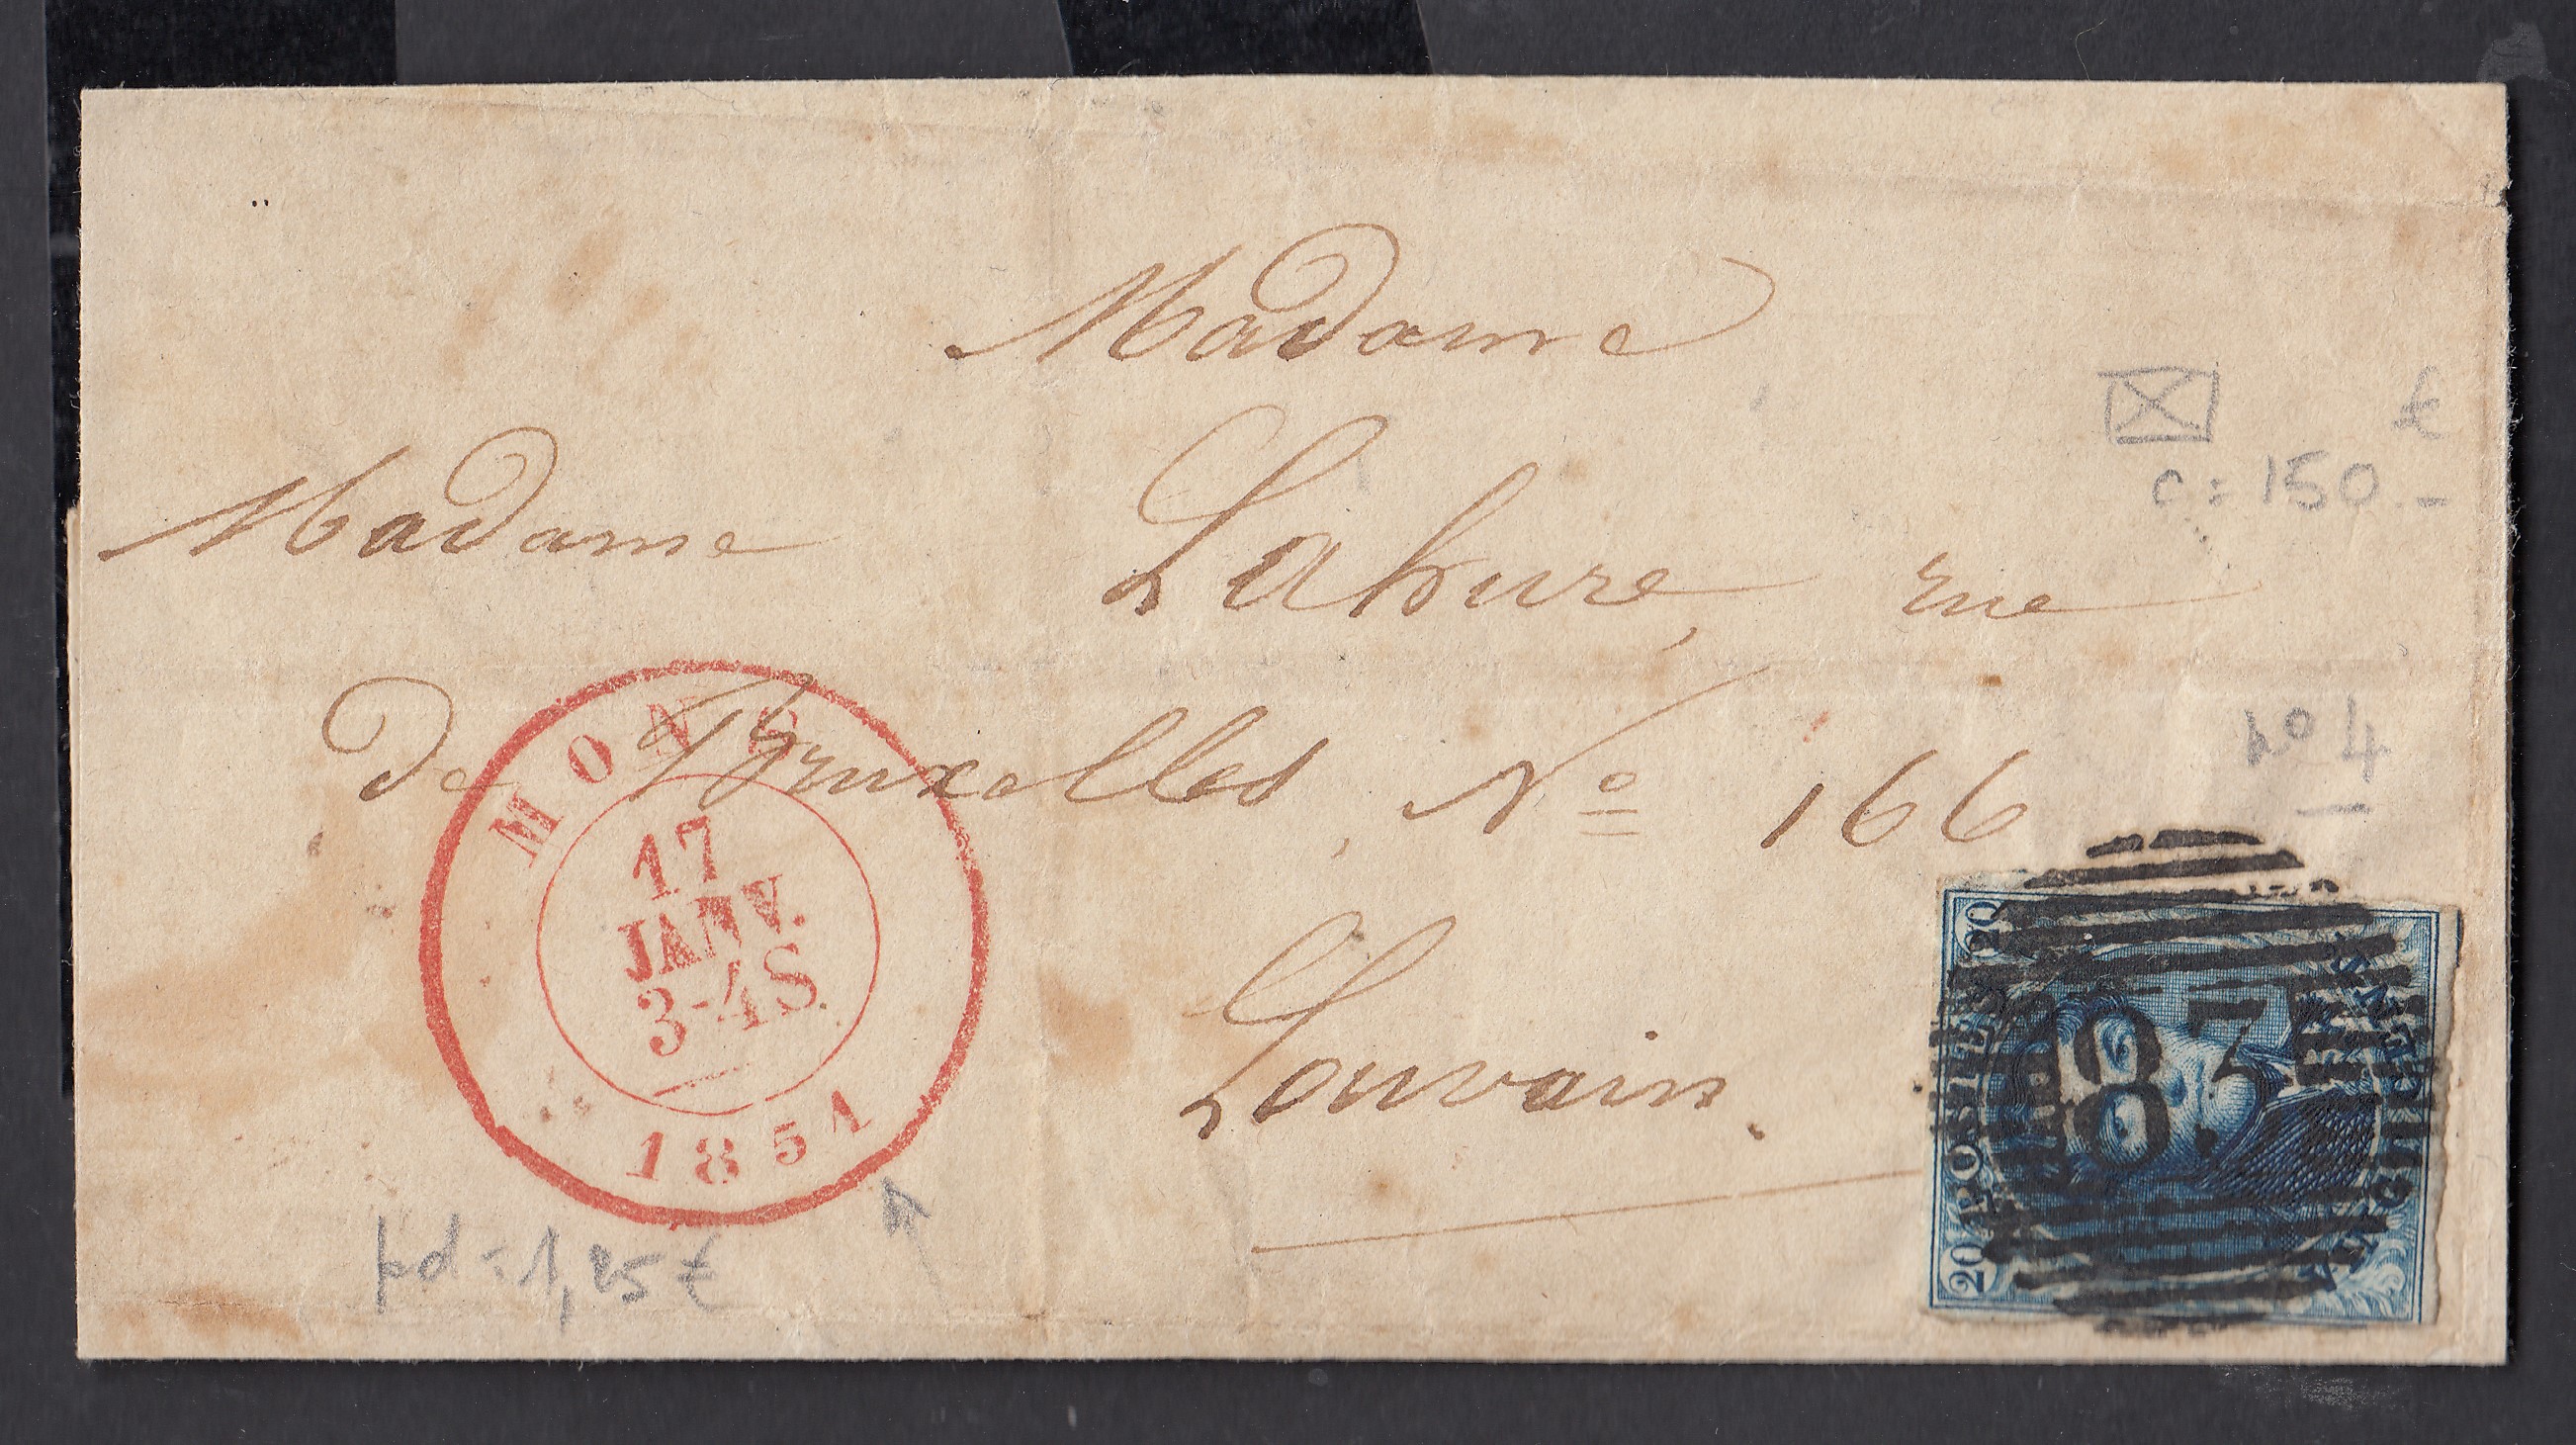 Madame
Madame Lahure, rue
de Bruxelles, No 166
Louvain.
MONS
17
JANV.
3-4S.
1851
€
c: 150.-
no 4
pd: 1,25 €
20 POSTES 20
83